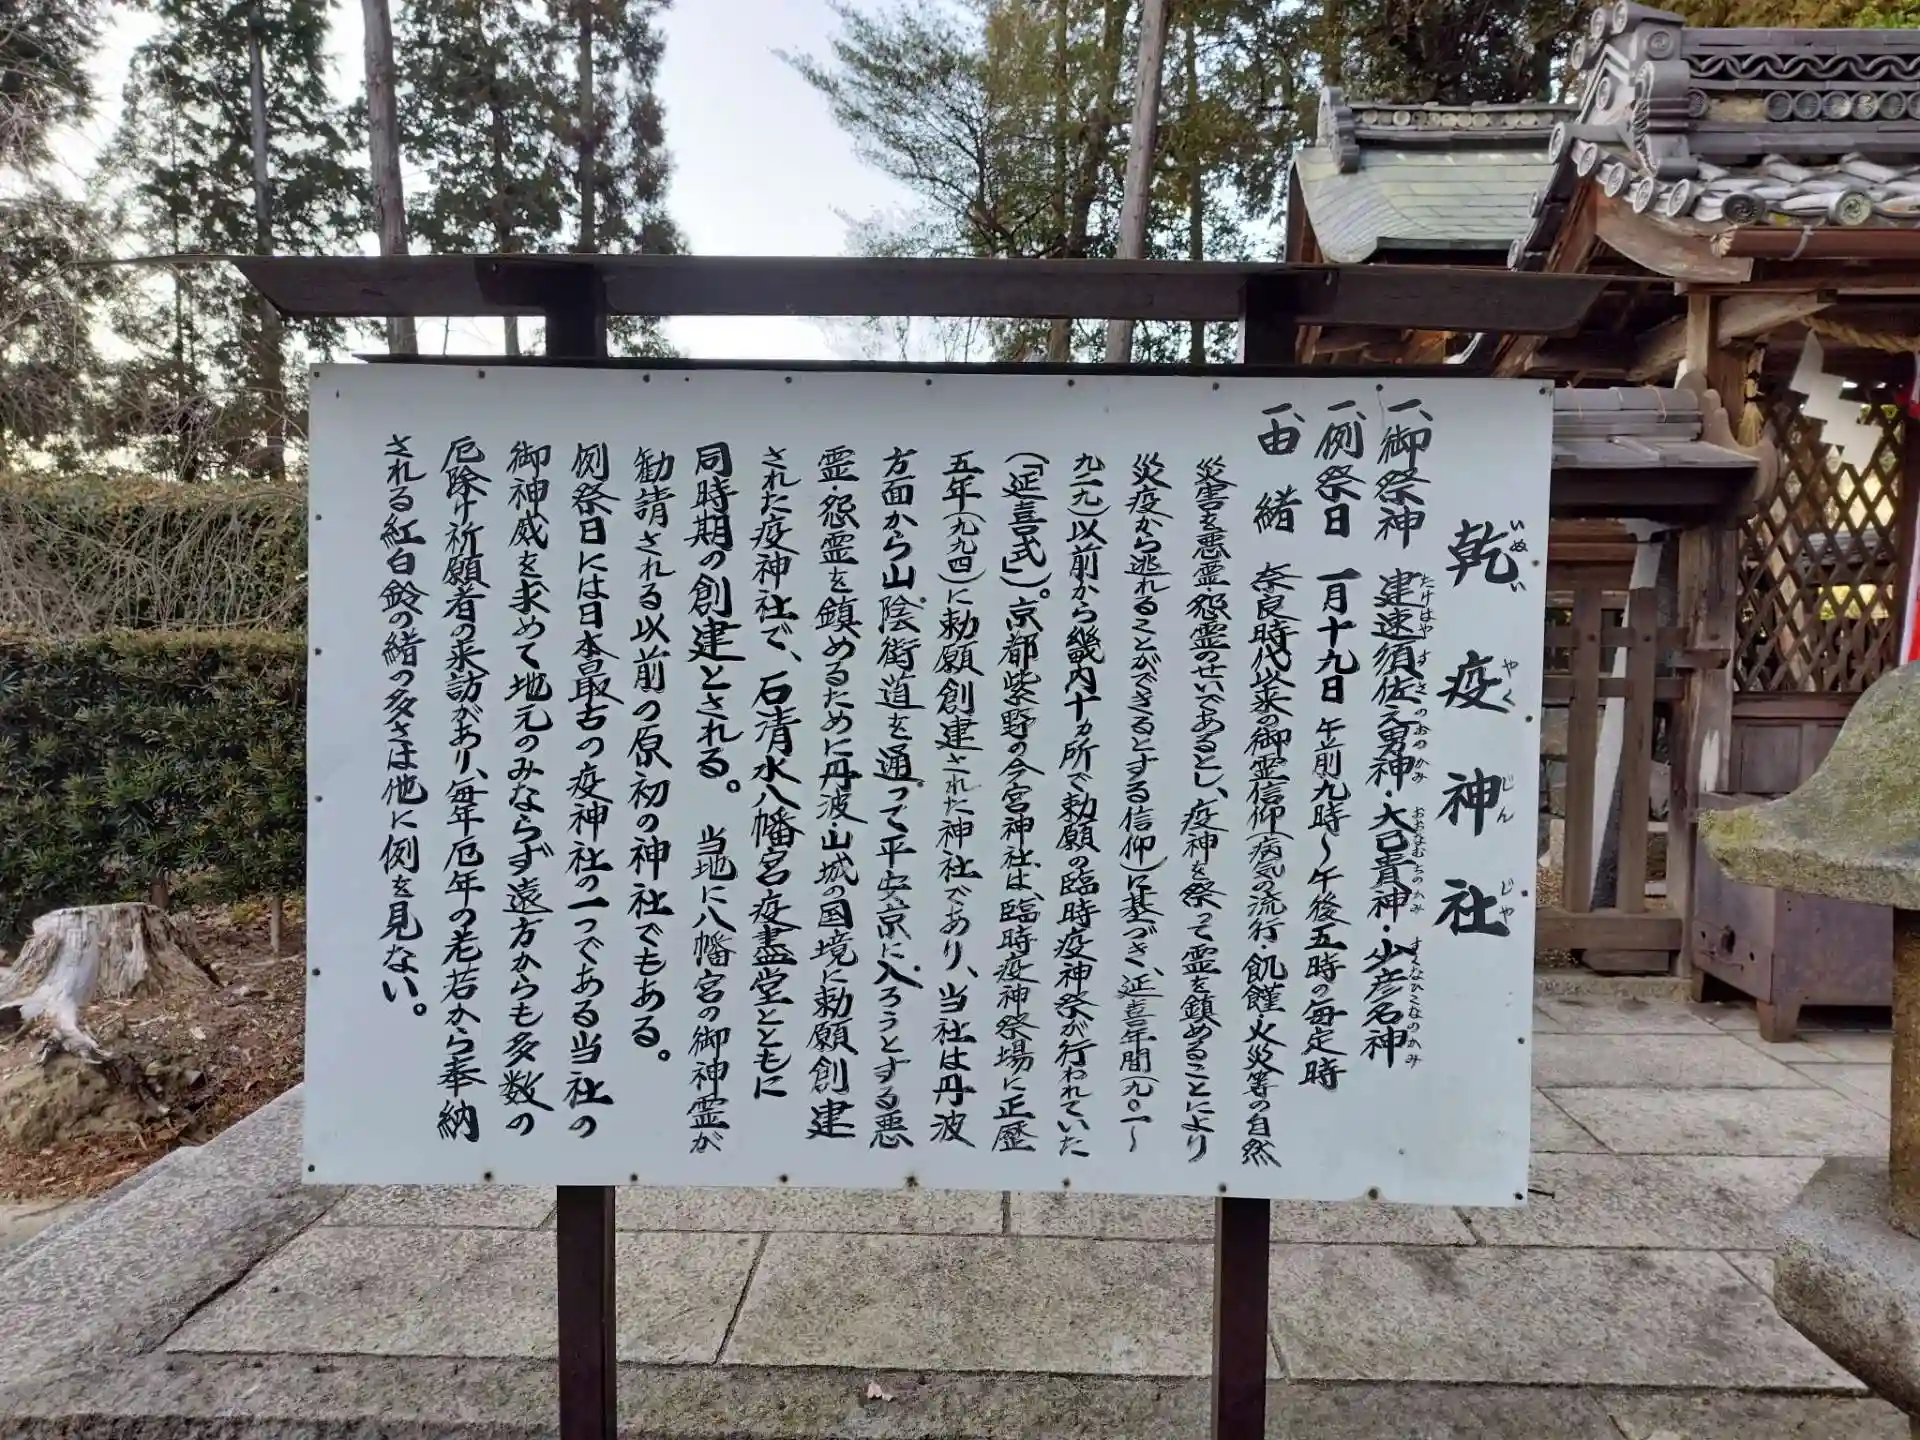 乾疫神社
いぬい やく じん じや
一、御祭神 建速須佐之男神・大己貴神・少彦名神
たけはやすさのおのかみ おおなむちのかみ すくなひこなのかみ
一、例祭日 一月十九日 午前九時〜午後五時の毎定時
一、由緒 奈良時代以来の御霊信仰(病気の流行・飢饉・火災等の自然
災害を悪霊・怨霊のせいであるとし、疫神を祭って霊を鎮めることにより
災疫から逃れることができるとする信仰)に基づき、延喜年間(九〇一〜
九二九)以前から畿内十ヵ所で勅願の臨時疫神祭が行われていた
(「延喜式」)。京都紫野の今宮神社は、臨時疫神祭場に正歴
五年(九九四)に勅願創建された神社であり、当社は丹波
方面から山陰街道を通って平安京に入ろうとする悪
霊・怨霊を鎮めるために丹波山城の国境に勅願創建
された疫神社で、石清水八幡宮疫盡堂とともに
同時期の創建とされる。 当地に八幡宮の御神霊が
勧請される以前の原初の神社でもある。
例祭日には日本最古の疫神社の一つである当社の
御神威を求めて地元のみならず遠方からも多数の
厄除け祈願者の来訪があり、毎年厄年の老若から奉納
される紅白鈴の緒の多さは他に例を見ない。